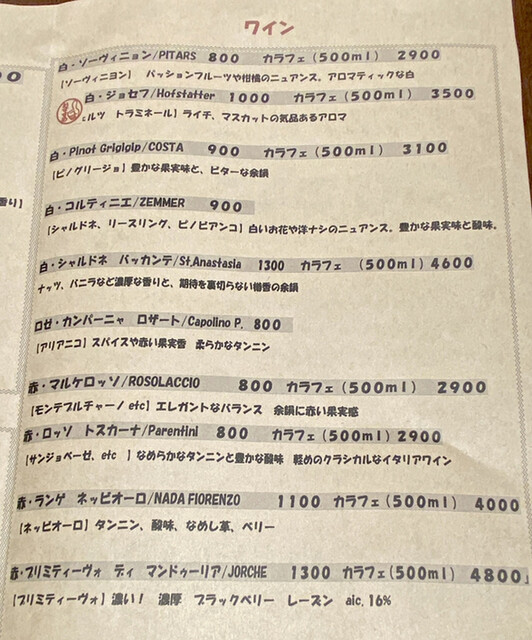 ワイン
白・ソーヴィニョン/PITARS 800 カラフェ(500ml) 2900
【ソーヴィニヨン】 パッションフルーツや柑橘のニュアンス。アロマティックな白
白・ジョセフ/Hofstatter 1000 カラフェ(500ml) 3500
ルツ トラミネール】ライチ、マスカットの気品あるアロマ
白・Pinot Grigigip/COSTA 900 カラフェ(500ml) 3100
【ピノグリージョ】豊かな果実味と、ビターな余韻
白・コルティニエ/ZEMMER 900
【シャルドネ、リースリング、ピノビアンコ】白いお花や洋ナシのニュアンス。豊かな果実味と酸味。
白・シャルドネ バッカンテ/St.Anastasia 1300 カラフェ (500ml) 4600
ナッツ、バニラなど濃厚な香りと、期待を裏切らない樽香の余韻
ロゼ・カンパーニャ ロザート/Capolino P. 800
【アリアニコ】スパイスや赤い果実香 柔らかなタンニン
赤・マルケロッソ/ROSOLACCIO 800 カラフェ(500ml) 2900
【モンテプルチャーノ etc】エレガントなバランス 余韻に赤い果実感
赤・ロッソ トスカーナ/Parentini 800 カラフェ(500ml) 2900
【サンジョベーゼ、etc 】なめらかなタンニンと豊かな酸味 軽めのクラシカルなイタリアワイン
赤・ランゲ ネッビオーロ/NADA FIORENZO 1100 カラフェ(500ml) 4000
【ネッビオーロ】タンニン、酸味、なめし革、ベリー
赤・プリミティーヴォ ディ マンドゥーリア/JORCHE 1300 カラフェ(500ml) 4800
【プリミティーヴォ】濃い! 濃厚 ブラックベリー レーズン alc.16%